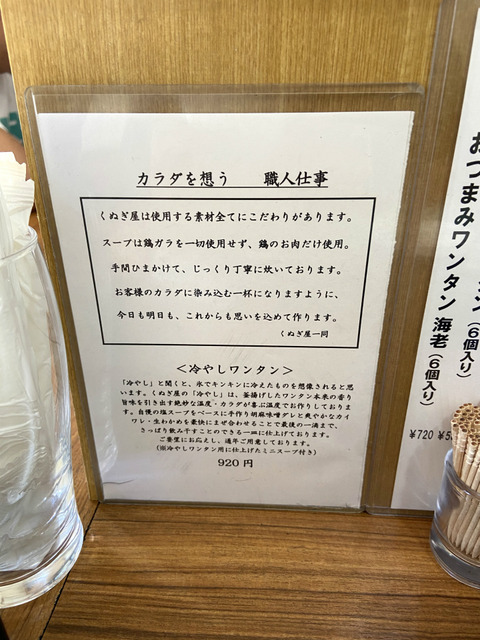 カラダを想う　職人仕事
くぬぎ屋は使用する素材全てにこだわりがあります。
スープは鶏ガラを一切使用せず、鶏のお肉だけ使用。
手間ひまかけて、じっくり丁寧に炊いております。
お客様のカラダに染み込む一杯になりますように、
今日も明日も、これからも思いを込めて作ります。
くぬぎ屋一同
＜冷やしワンタン＞
「冷やし」と聞くと、氷でキンキンに冷えたものを想像されると思
います。くぬぎ屋の「冷やし」は、釜揚げしたワンタン本来の香り
旨味を引き出す絶妙な温度・カラダが喜ぶ温度でお作りしておりま
す。自慢の塩スープをベースに手作り胡麻味噌ダレと爽やかなカイ
ワレ・生わかめを豪快にまぜ合わせることで最後の一滴まで、
さっぱり飲み干すことのできる一皿に仕上げております。
ご要望にお応えし、通年ご用意しております。
（※冷やしワンタン用に仕上げたミニスープ付き）
920 円
おつまみワンタン 海老（6個入り）
（6個入り）
¥720